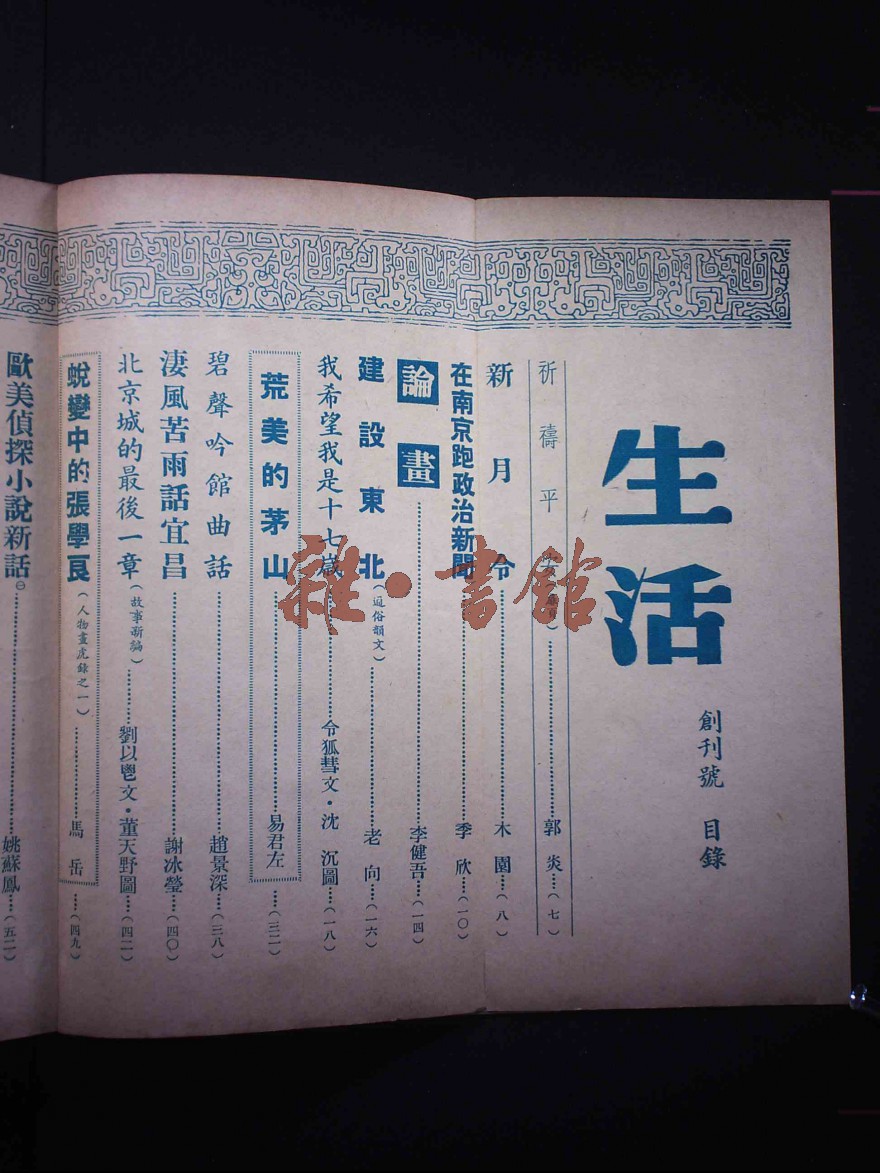 生活
創刊號 目錄
祈禱平 郭炎…(七)
新月令 木園…(八)
在南京跑政治新聞 季欣…(一〇)
論畫 李健吾…(一四)
建設東北(通俗韻文) 老向…(一六)
我希望我是十七歲 令狐彗文・沈沉圖…(一八)
荒美的茅山 易君左…(三二)
碧聲吟館曲話 趙景深…(三八)
淒風苦雨話宜昌 謝冰瑩…(四〇)
北京城的最後一章(故事新編) 劉以鬯文・董天野圖…(四二)
蛻變中的張學良(人物畫虎錄之一) 馬岳…(四九)
歐美偵探小說新話㊀ 姚蘇鳳…(五二)
雜・書館